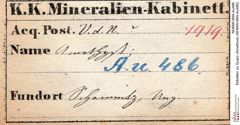 K.K. Mineralien-Kabinett.
Acq. Post. V.d.N. 1919.
Name Amethyst.
A.u. 486
Fundort Schemnitz, Ung.